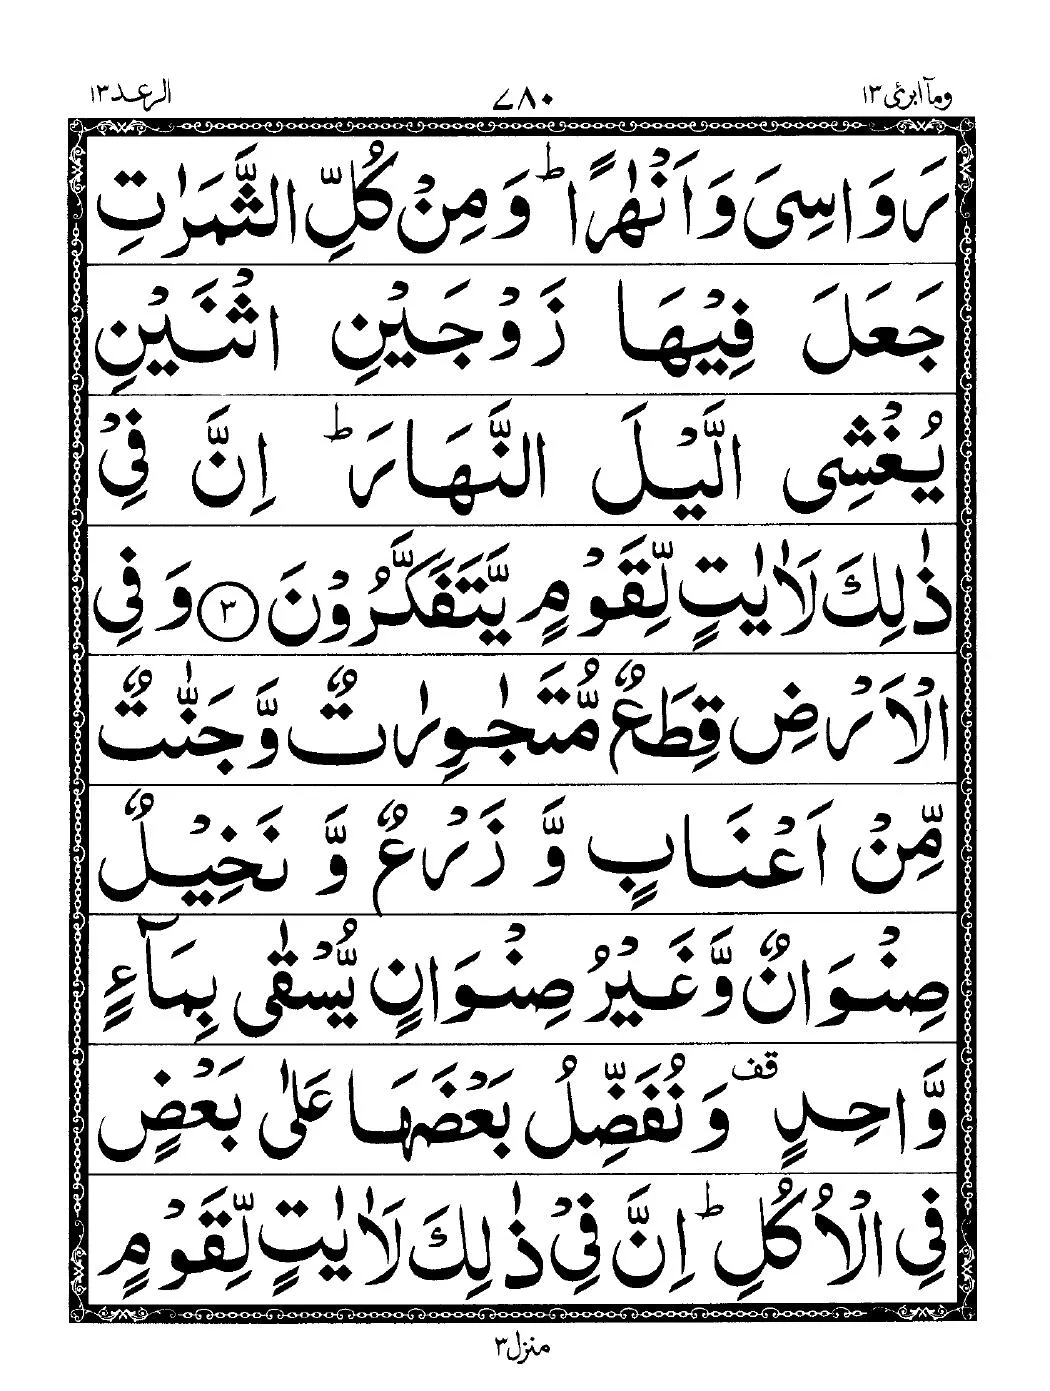 وماۤابرئ ١٣ ٧٨٠ الرعد ١٣
رَوَاسِىَ وَاَنْهٰرًا ؕ وَمِنْ كُلِّ الثَّمَرٰتِ
جَعَلَ فِيْهَا زَوْجَيْنِ اثْنَيْنِ
يُغْشِى الَّيْلَ النَّهَارَ ؕ اِنَّ فِىْ
ذٰلِكَ لَاٰيٰتٍ لِّقَوْمٍ يَّتَفَكَّرُوْنَ ﴿٣﴾ وَفِى
الْاَرْضِ قِطَعٌ مُّتَجٰوِرٰتٌ وَّجَنّٰتٌ
مِّنْ اَعْنَابٍ وَّ زَرْعٌ وَّ نَخِيْلٌ
صِنْوَانٌ وَّغَيْرُ صِنْوَانٍ يُّسْقٰى بِمَآءٍ
وَّاحِدٍ قف وَنُفَضِّلُ بَعْضَهَا عَلٰى بَعْضٍ
فِى الْاُكُلِ ؕ اِنَّ فِىْ ذٰلِكَ لَاٰيٰتٍ لِّقَوْمٍ
منزل ٣